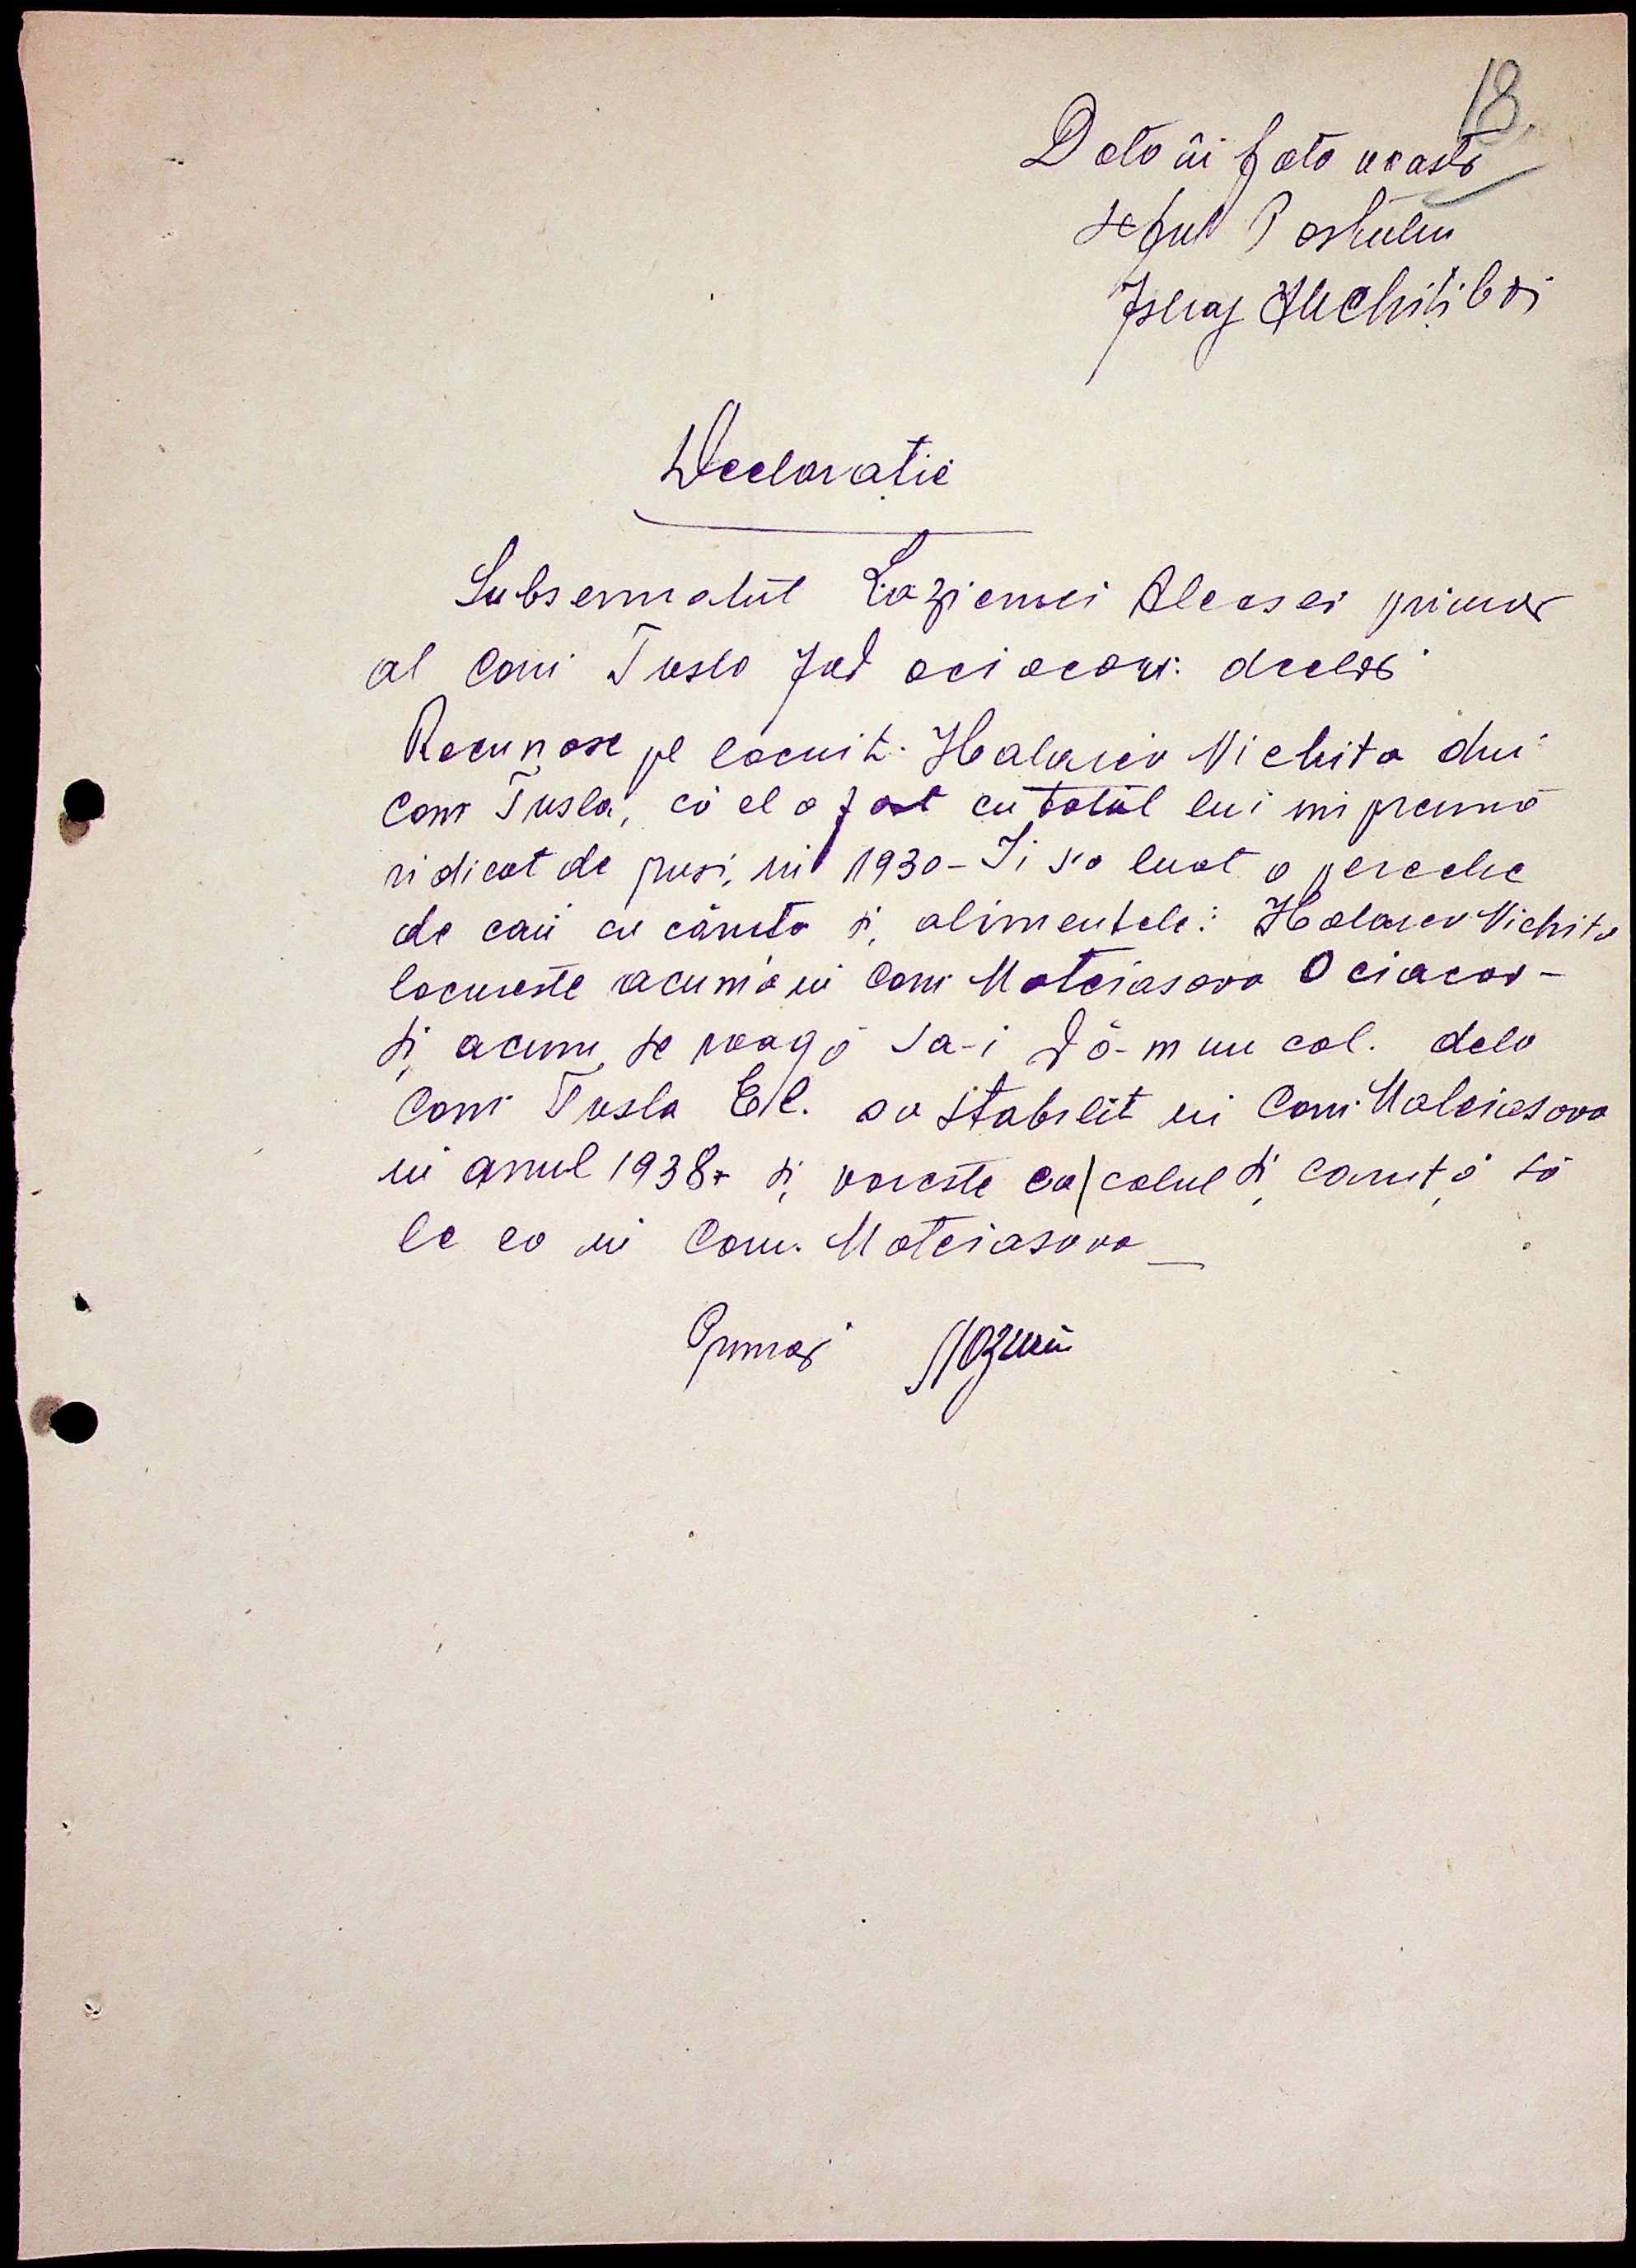 18.
Dato în fata noastro
Seful Postului
Declaratie
Subsemnatul Lazienco Alecsei primar
al Com Tusla Jud Oceacov: declar
Recunosc pe locuit. Halarev Nichita din
Com Tusla, că el a fost cu totul lui impreună
ridicat de rusi, in 1930 - Ii s'a luat o pereche
de caii cu căruta si, alimentele: Halarev Nichita
locueste acumă in Com Mateiasova Ociacov -
Si, acum, se roagă sa-i Dă-m un cal. dela
Com Tusla El. sa Stabilit in Com. Mateiasova
in anul 1938 si, voreste ca calul si, caruță să
le ea in Com. Mateiasova
Primar